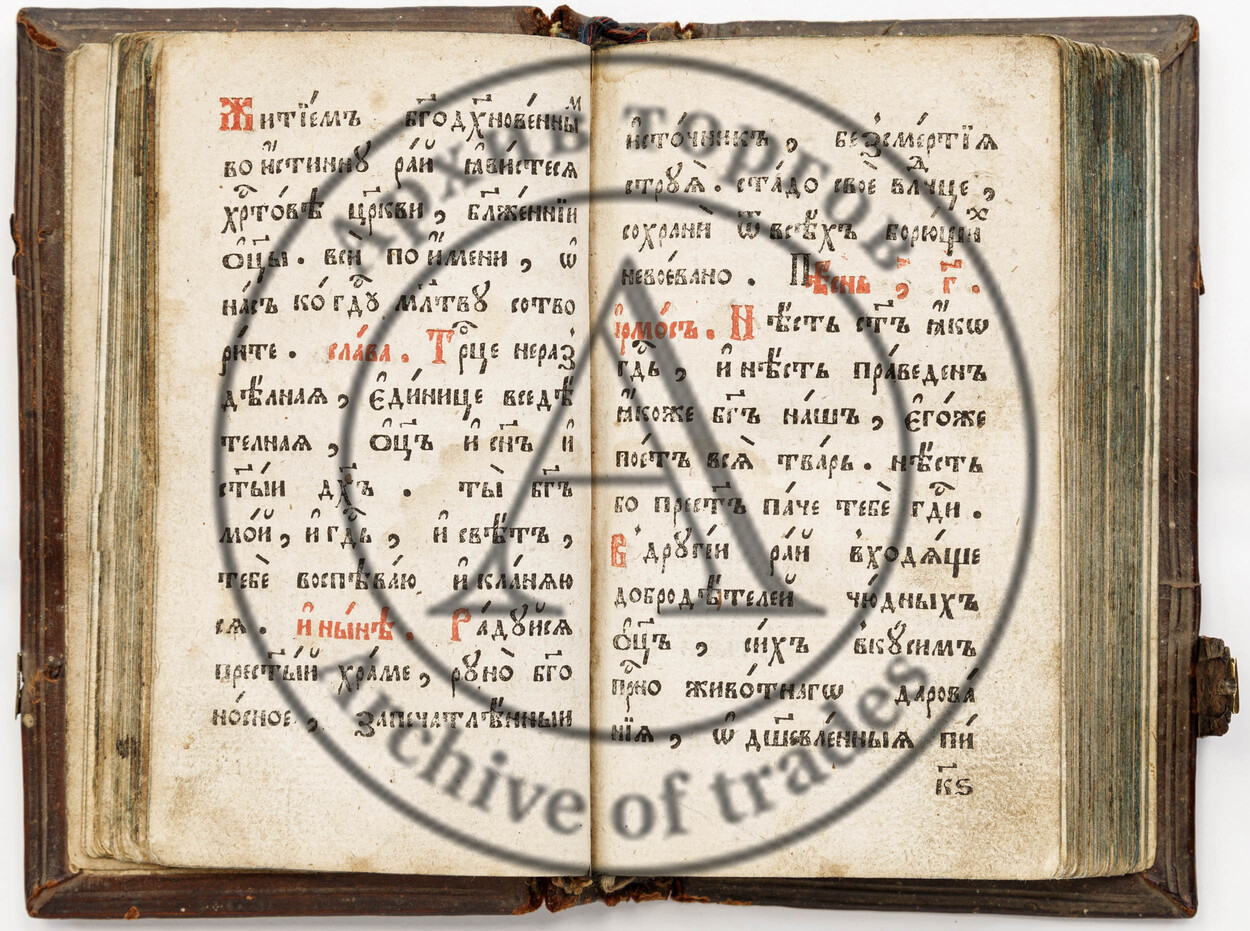 Житі́емъ бг҃одх҃нове́нныⷨ
во и҆́стиннꙋ ра́й ꙗ҆ви́стеся
хрⷭ҇то́вѣ цр҃кви, бл҃же́ннїи
ѻ҆ц҃ы. всѝ по и҆́мени, ѡ҆
на́съ ко гдⷭ҇ꙋ мл҃твꙋ сотво
ри́те. сла́ва. Трⷪ҇це нераз̾
дѣ́лная, є҆ди́нице вседѣ́
телная, ѻ҆ц҃ъ и҆ сн҃ъ и҆
ст҃ы́й дх҃ъ. ты̀ бг҃ъ
мо́й, и҆ гдⷭ҇ь, и҆ свѣ́тъ,
тебѐ воспѣва́ю и҆ кла́няю
ся. и҆ ны́нѣ. Ра́дꙋйся
прест҃ы́й хра́ме, рꙋно̀ бг҃о
но́сное, запечатлѣ́нный
и҆сто́чникъ, без̾сме́ртїя
стрꙋѧ̀. ста́до своѐ влⷣчце,
сохранѝ ѿ всѣ́хъ борю́щиⷯ
невое́вано. Пѣ́снь, г҃.
і҆рмо́съ. Нѣ́сть ст҃ъ ꙗ҆́кѡ
гдⷭ҇ь, и҆ нѣ́сть пра́веденъ
ꙗ҆́коже бг҃ъ на́шъ, є҆го́же
пое́тъ всѧ̀ тва́рь. нѣ́сть
бо прест҃ъ па́че тебѐ гдⷭ҇и.
В̾ дрꙋгі́й ра́й в̾ходѧ́ще
добродѣ́телей чю́дныхъ
ѻ҆ц҃ъ, си́хъ в̾кꙋ́симъ
прⷭ҇но живо́тнагѡ дарова́
нїя, ѡ҆ дш҃евле́нныя пи́
к҃ѕ
Архив торгов
Archive of trades
А